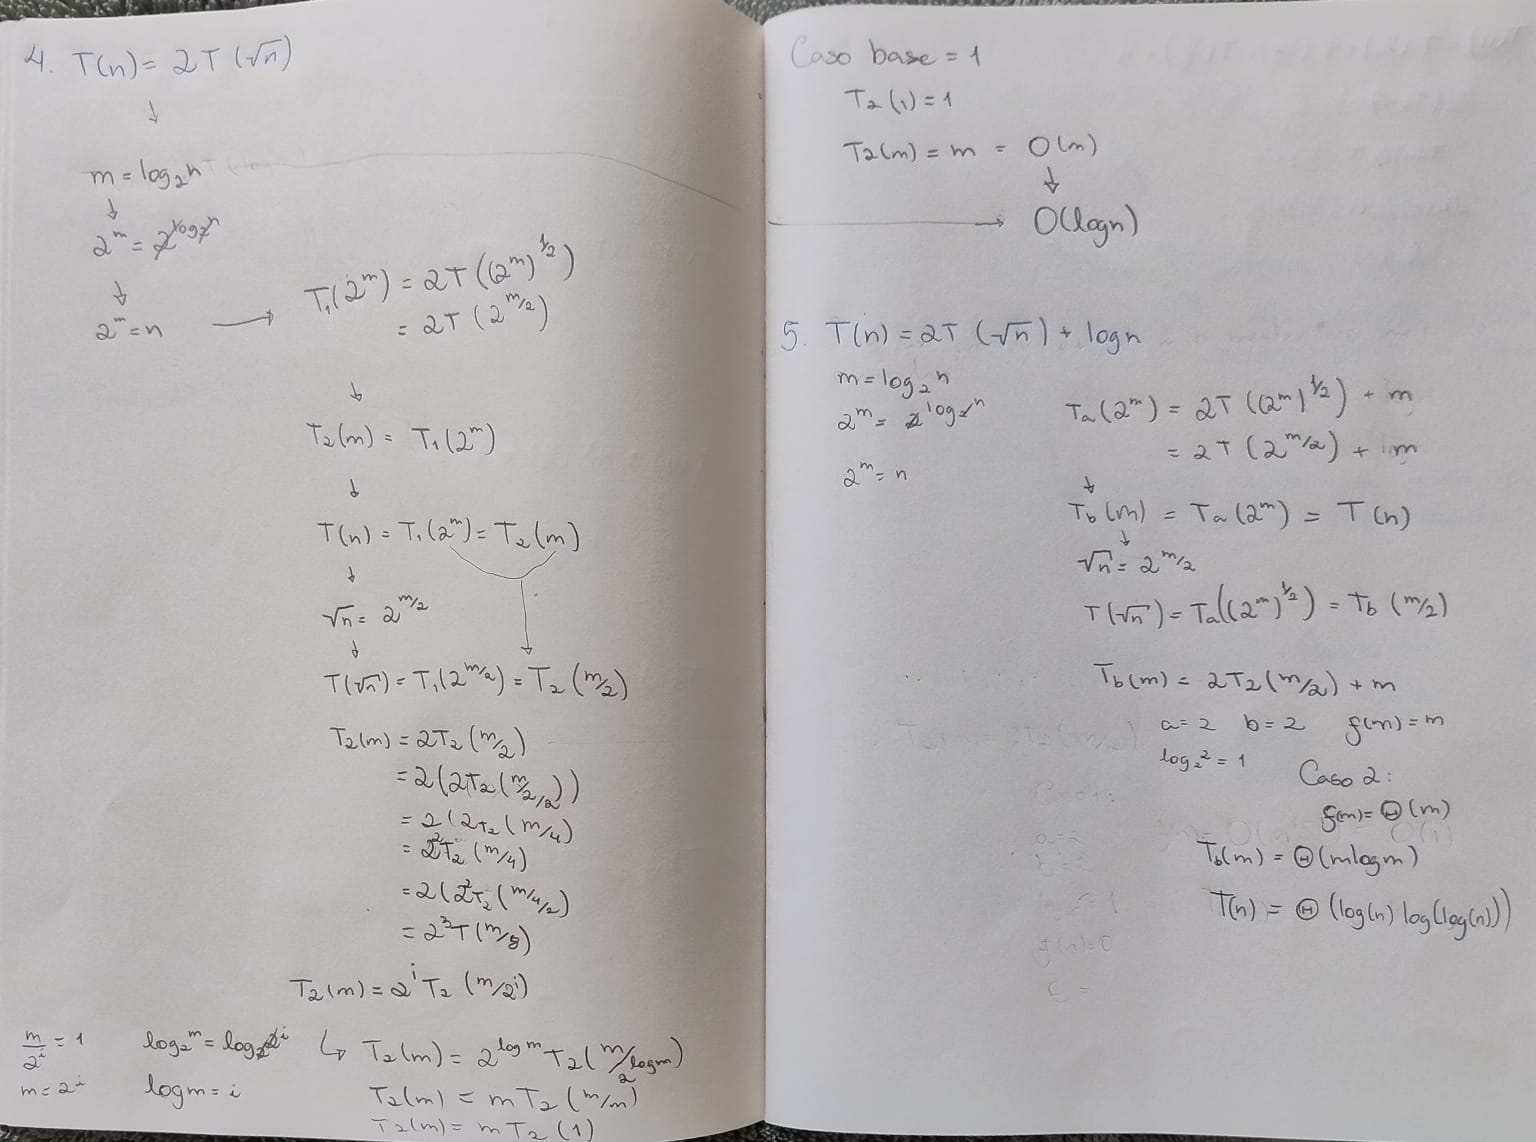 4. T(n) = 2T(√n)
↓
m = log₂n
↓
2^m = 2^log₂n
↓
2^m = n → T₁(2^m) = 2T((2^m)^1/2)
= 2T(2^m/2)
↓
T₂(m) = T₁(2^m)
↓
T(n) = T₁(2^m) = T₂(m)
↓
√n = 2^m/2
↓
T(√n) = T₁(2^m/2) = T₂(m/2)
T₂(m) = 2T₂(m/2)
= 2(2T₂(m/2/2))
= 2(2T₂(m/4)
= 2²T₂(m/4)
= 2(2²T₂(m/4/2)
= 2³T(m/8)
T₂(m) = 2^i T₂(m/2^i)
m/2^i = 1 log₂m = log₂2^i ↳ T₂(m) = 2^log m T₂(m/2^logm)
m = 2^i logm = i T₂(m) = mT₂(m/m)
T₂(m) = mT₂(1)
Caso base = 1
T₂(1) = 1
T₂(m) = m = O(m)
↓
→ O(logn)
5. T(n) = 2T(√n) + logn
m = log₂n
2^m = 2^log₂n Ta(2^m) = 2T((2^m)^1/2) + m
= 2T(2^m/2) + m
2^m = n
↓
Tb(m) = Ta(2^m) = T(n)
↓
√n = 2^m/2
T(√n) = Ta((2^m)^1/2) = Tb(m/2)
Tb(m) = 2T₂(m/2) + m
a = 2 b = 2 f(m) = m
log₂2 = 1 Caso 2:
f(m) = Θ(m)
Tb(m) = Θ(mlogm)
T(n) = Θ(log(n) log(log(n)))